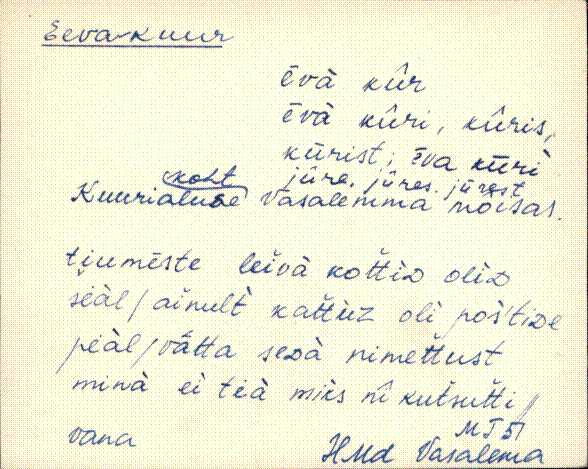 Eeva-kuur
ēvà kûr
ēvà kûri, kûris,
kūrist; ēva kūri
jūre, jūres, jūrest
koht
Kuurialune Vasalemma mõisas.
tjumēste leivà kottiD oliD
sėàl / ainult kattuz oli postiDe
pėàl / vàtta seDà nimettust
minà ei tėà miks nî kutsutti //
vana
MT 51
HMd Vasalema